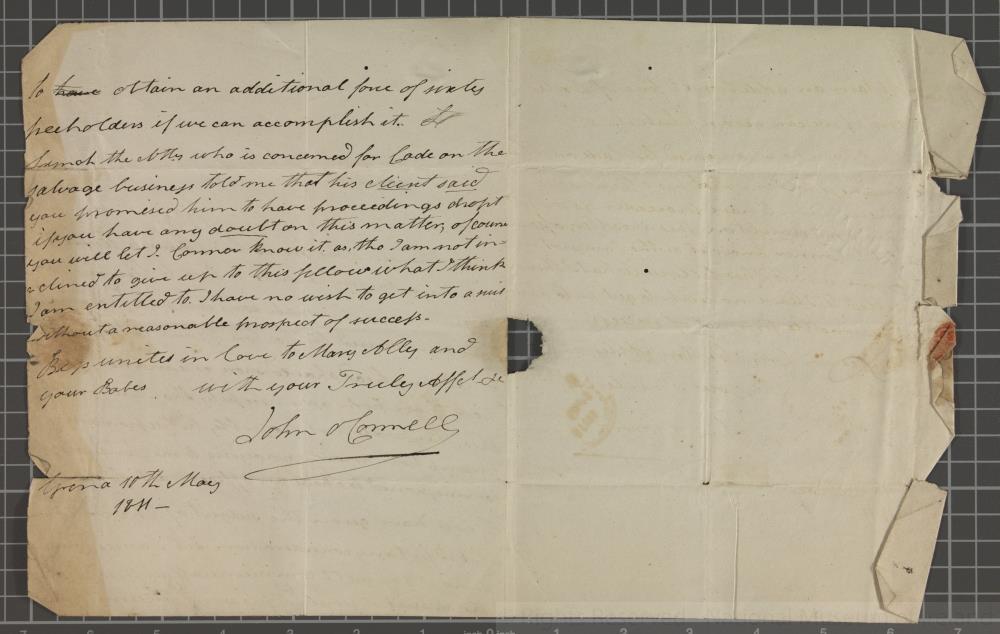 to have obtain an additional four of sixty
freeholders if we can accomplish it.
the Atty. who is concerned for Cade on the
salvage business told me that his client said
you promised him to have proceedings dropt
if you have any doubt on this matter, of course
you will let J. Connor know it. as, tho I am not in-
clined to give up to this fellow what I think
I am entitled to. I have no wish to get into a suit
without a reasonable prospect of success.
unites in love to Mary Ally and
your Babes. with your Truly Affet. &c
John O Connell
Grena 10th May
1811